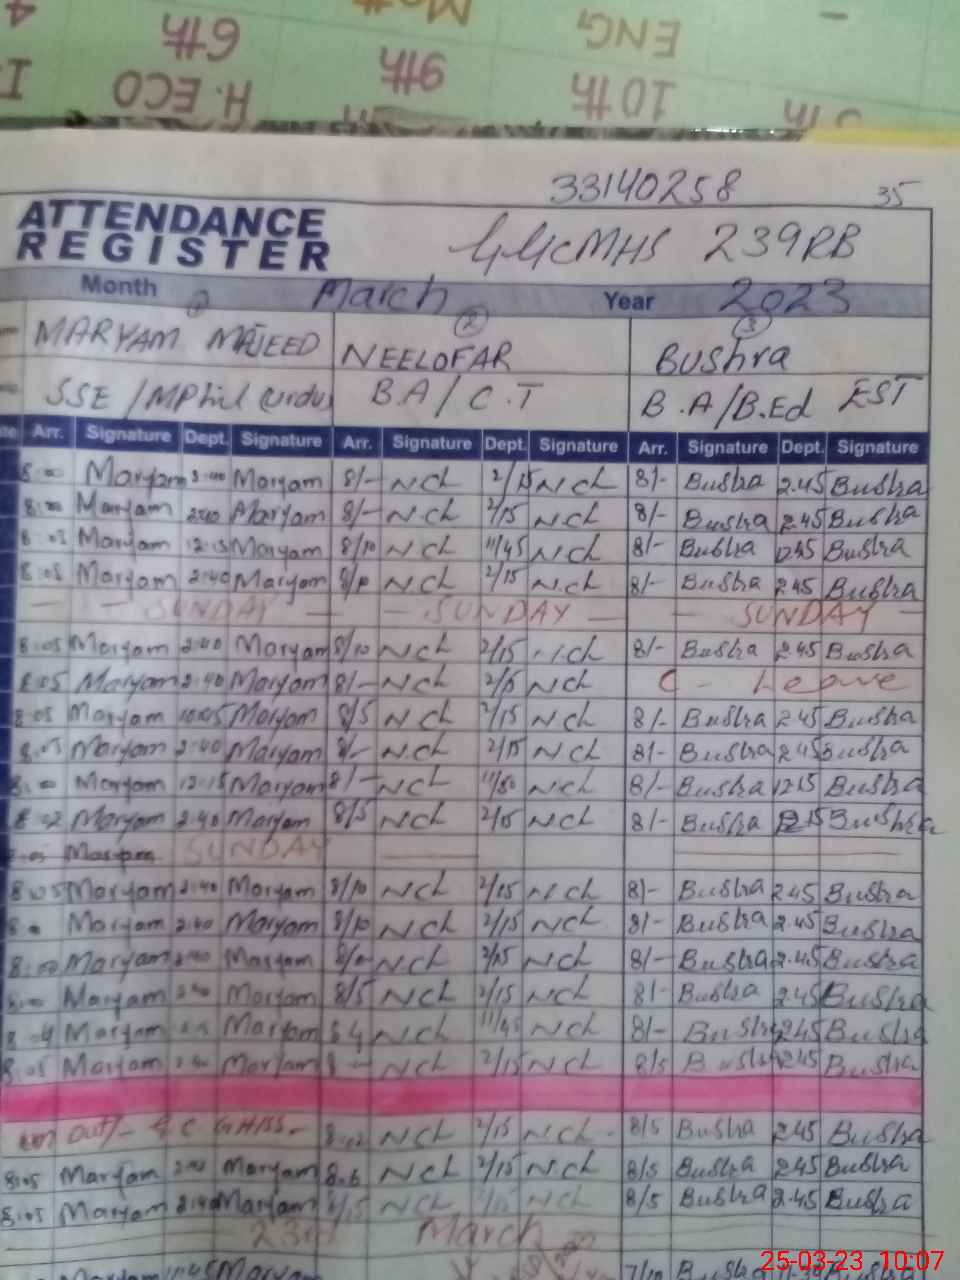 6th
9th
ENG
H. ECO
10th
33140258 35
ATTENDANCE
REGISTER
GGCMHS 239RB
Month March Year 2023
MARYAM MAJEED
②
NEELOFAR
③
Bushra
SSE / MPhil (urdu) B.A / C.T B.A/B.Ed EST
Arr. Signature Dept. Signature Arr. Signature Dept. Signature Arr. Signature Dept. Signature
8:00 Maryam 2:40 Maryam 8/- NCh 2/15 NCh 8/- Bushra 2.45 Bushra
8:00 Maryam 2:40 Maryam 8/- NCh 2/15 NCh 8/- Bushra 2.45 Bushra
8:05 Maryam 12:15 Maryam 8/10 NCh 11/45 NCh 8/- Bushra Bushra
8:05 Maryam 2:40 Maryam NCh 2/15 NCh 8/- Bushra 2.45 Bushra
— — SUNDAY — — SUNDAY — — SUNDAY —
8:05 Maryam 2:40 Maryam 8/10 NCh 2/15 NCh 8/- Bushra 2.45 Bushra
8:05 Maryam 2:40 Maryam 8/- NCh NCh C - Leave
8:05 Maryam Maryam 8/5 NCh 2/15 NCh 8/- Bushra 2.45 Bushra
8:05 Maryam 2:40 Maryam 8/- NCh 2/15 NCh 8/- Bushra 2.45 Bushra
8:00 Maryam 12:15 Maryam 8/- NCh 11/50 NCh 8/- Bushra 12.15 Bushra
8:02 Maryam 2:40 Maryam 8/5 NCh 2/15 NCh 8/- Bushra Bushra
Maryam SUNDAY
8:05 Maryam 2:40 Maryam 8/10 NCh 2/15 NCh 8/- Bushra 2.45 Bushra
Maryam 2:40 Maryam 8/10 NCh 2/15 NCh 8/- Bushra 2.45 Bushra
8:00 Maryam Maryam NCh 2/15 NCh 8/- Bushra 2.45 Bushra
8:00 Maryam Maryam 8/5 NCh 2/15 NCh 8/- Bushra 2.45 Bushra
8:04 Maryam Maryam NCh 11/45 NCh 8/- Bushra 2.45 Bushra
8:05 Maryam Maryam NCh 2/15 NCh 8/5 Bushra 2.45 Bushra
out/- NCh 2/15 NCh 8/5 Bushra 2.45 Bushra
8:05 Maryam Maryam NCh 2/15 NCh 8/5 Bushra 2.45 Bushra
8:05 Maryam 2:40 Maryam NCh NCh 8/5 Bushra 2.45 Bushra
23rd March
Maryam Maryam
25-03-23 10:07